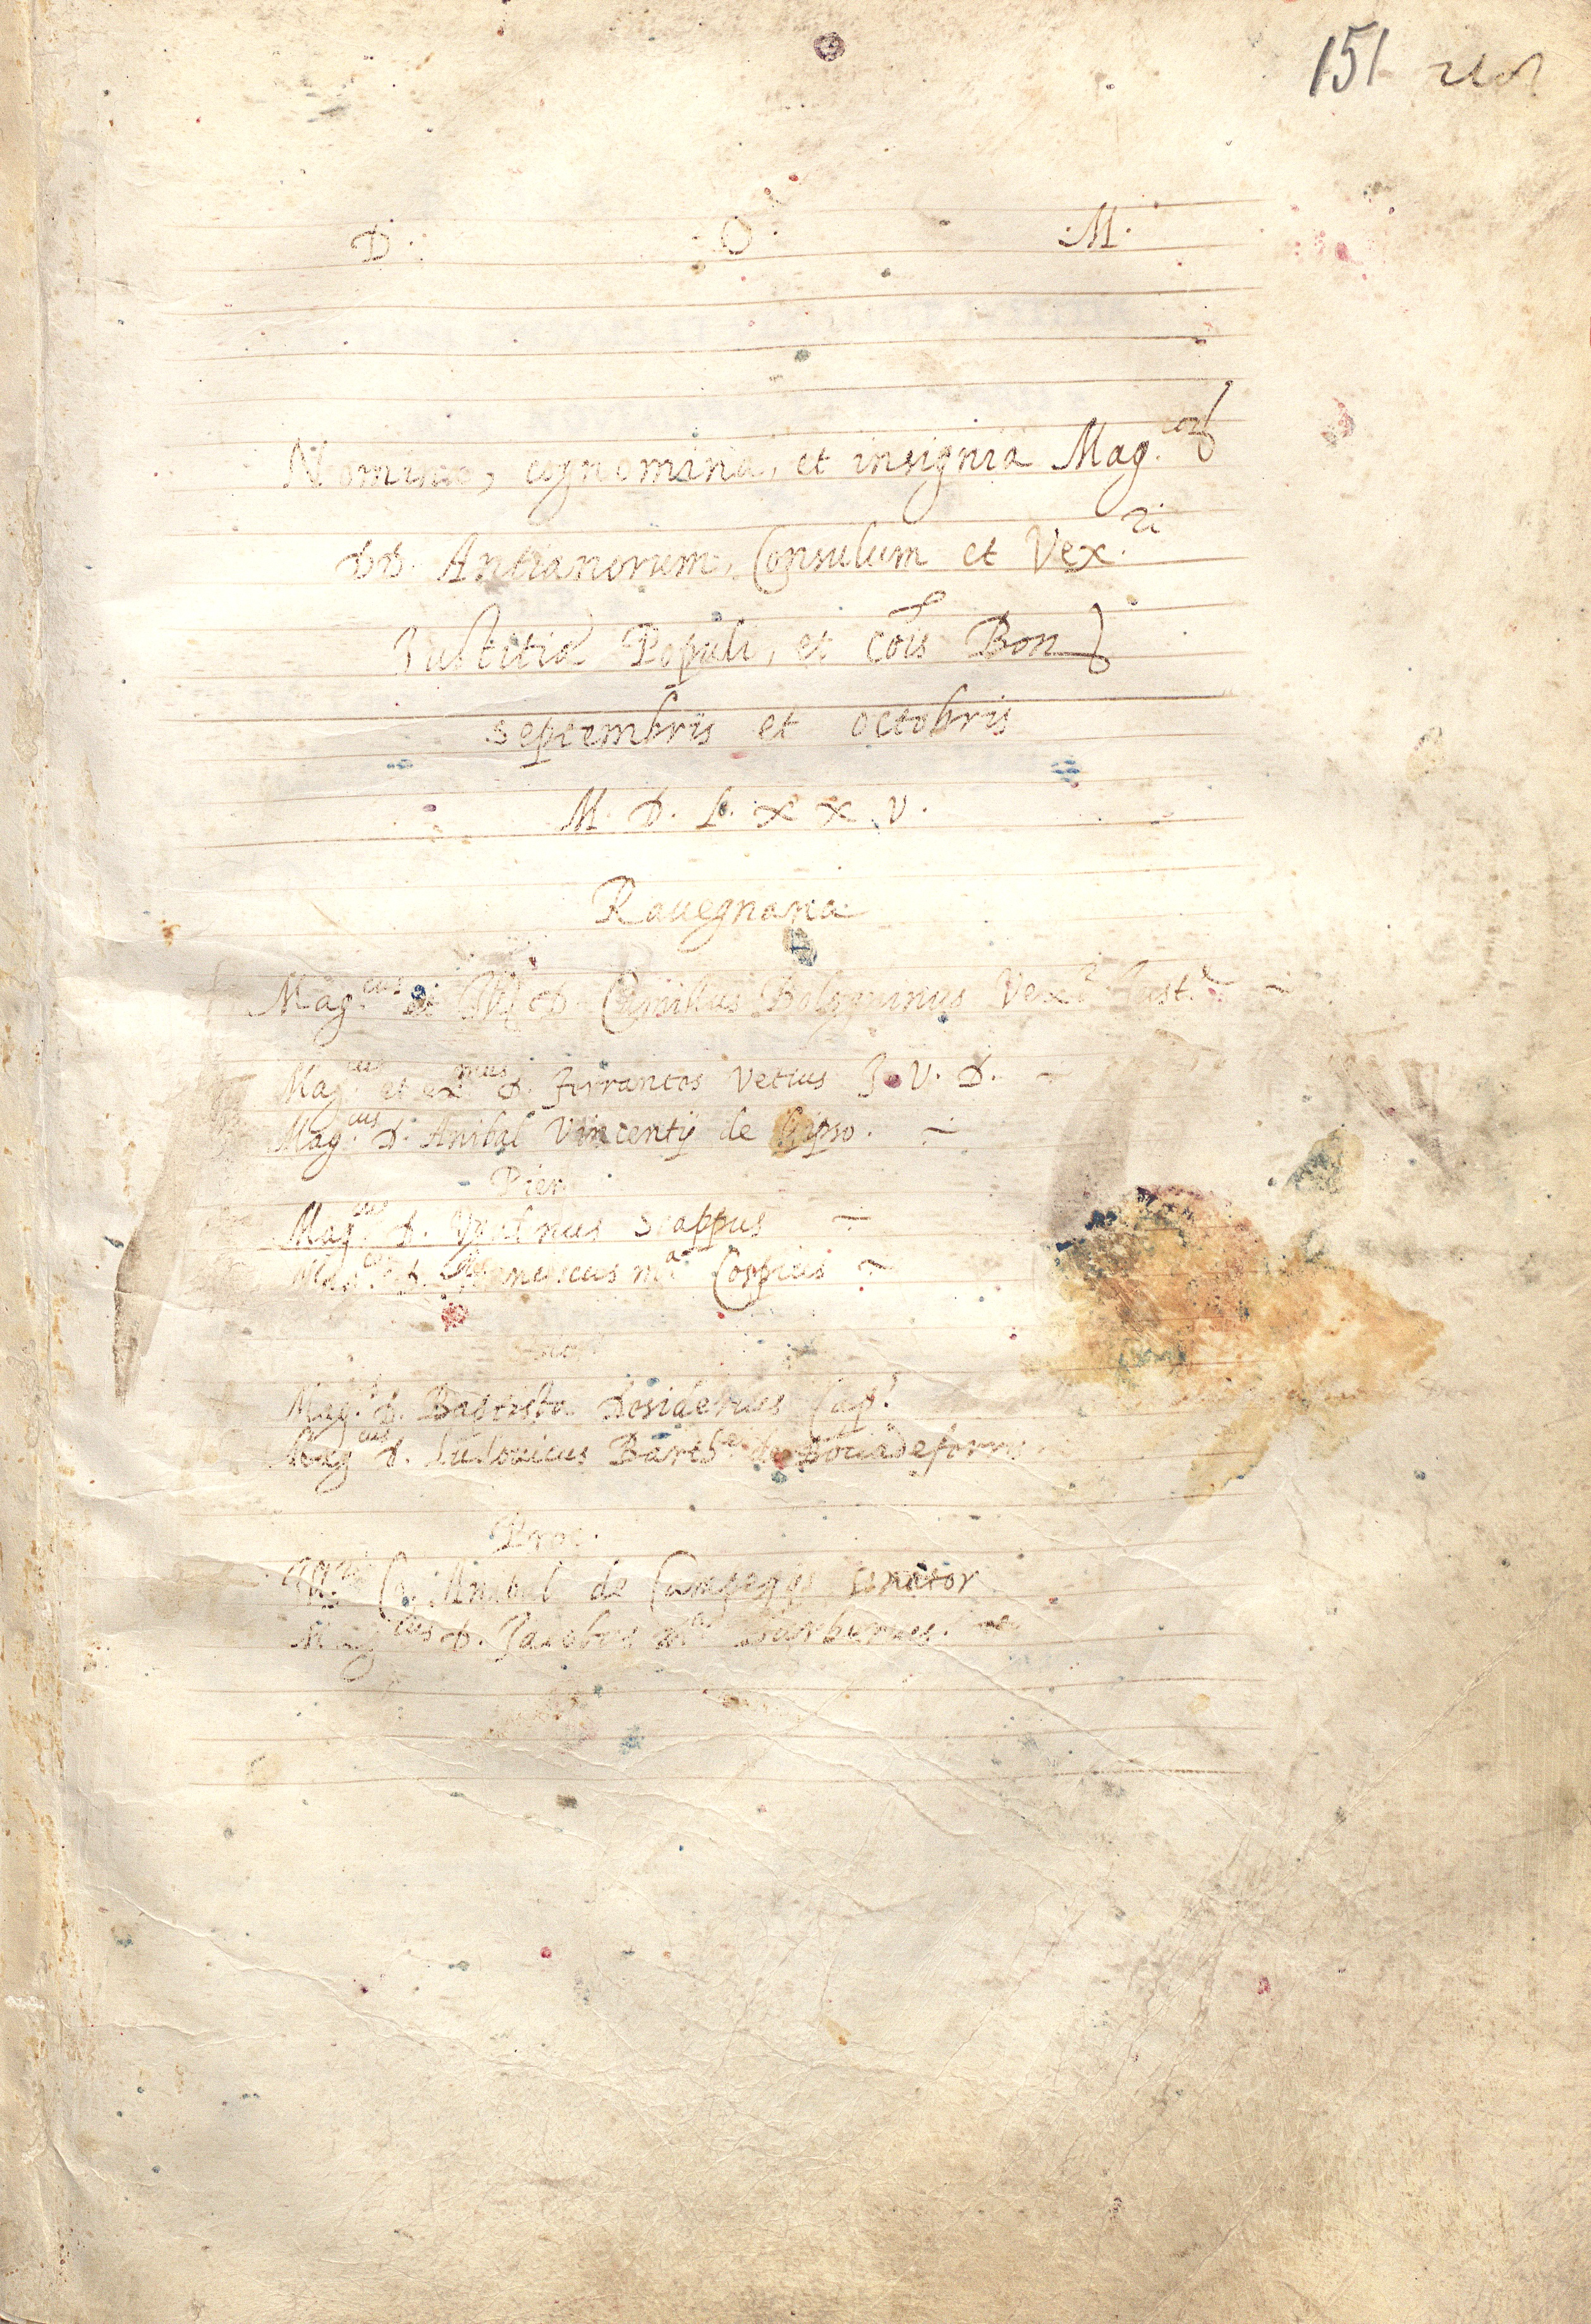 151
D. O. M.
Nomina, cognomina, et insignia Mag.corum
DD. Antianorum, Consulum et Vex.ri
Justitiæ Populi, et cois Bon
septembris et octobris
M. D. L. x x v.
Rauegnana
Mag.cus et D. Camillus Bologninus Vex.r Just.e
Mag.cus et ex.mus D. Ferrantes Vetius J. V. D.
Mag.cus D. Anibal Vincentij de Gipso.
Pier.
Mag.cus D. scappus
Mag.cus D. Franciscus m.a Cospius
Mag.cus D. Baptista Desiderius
Mag.cus D. Ludouicus Barth.ei de Bocadeferro
Proc.
Co. Anibal de Campegijs senator
Mag.cus D. Jacobus Barberius.